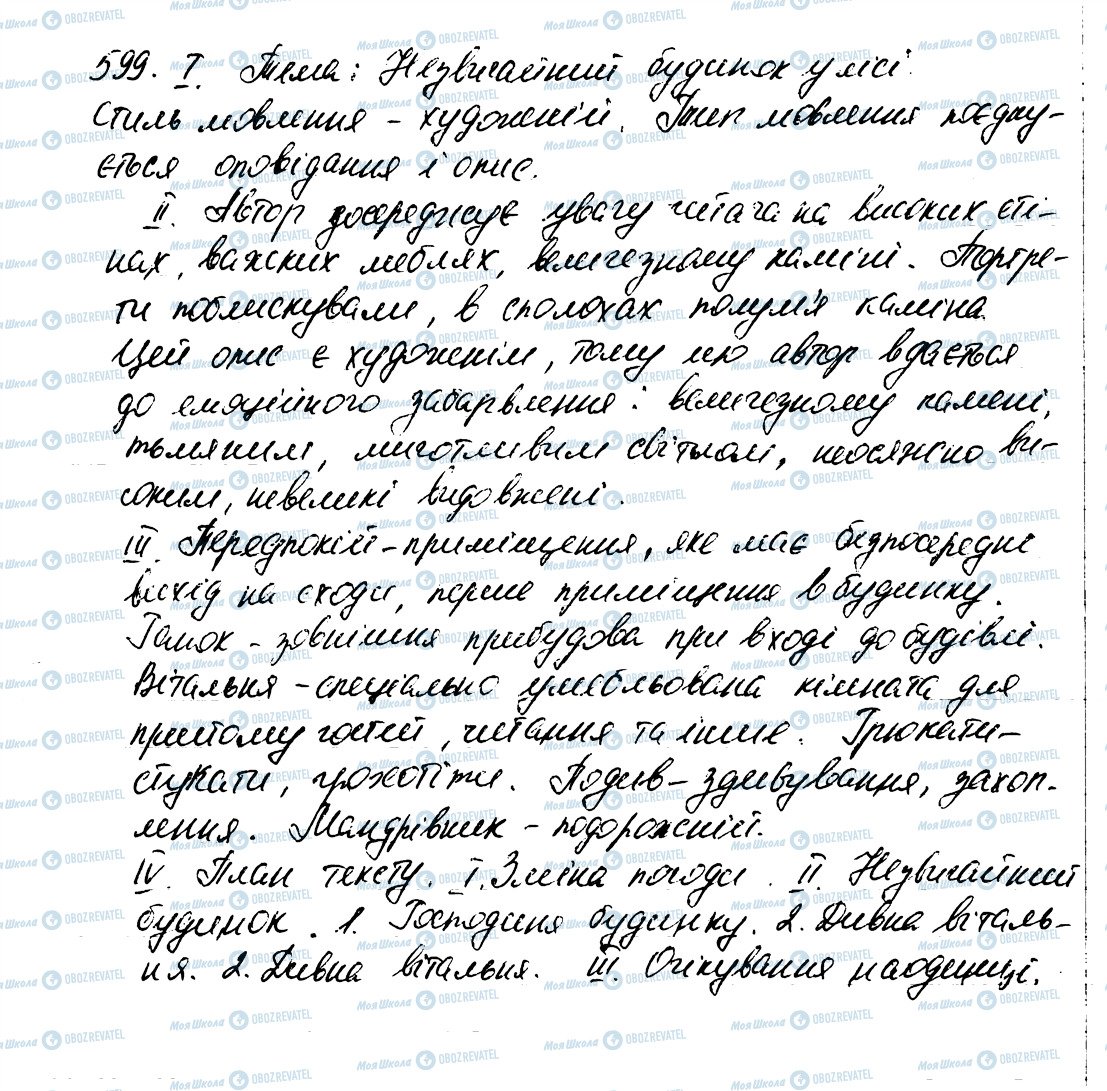 599. I. Тема: Незвичайний будинок у лісі.
Стиль мовлення – художній. Тип мовлення поєдну-
ється оповідання і опис.
II. Автор зосереджує увагу читача на високих сті-
нах, важких меблях, величезному каміні. Портре-
ти поблискували, в сполохах полум'я каміна.
Цей опис є художнім, тому що автор вдається
до емоційного забарвлення: величезному камені,
тьмяним, миготливим світлом, неосяжно ви-
соким, невеликі видовжені.
III. Передпокій – приміщення, яке має безпосередні
вихід на сходи, перше приміщення в будинку.
Ганок – зовнішня прибудова при вході до будівлі.
Вітальня – спеціально умебльована кімната для
прийому гостей, читання та інше. Грюкати –
стукати, грюхотіти. Подив – здивування, захоп-
лення. Мандрівник – подорожній.
IV. План тексту. I. Зміна погоди. II. Незвичайний
будинок. 1. Господиня будинку. 2. Дивна віталь-
ня. 2. Дивна вітальня. III. Очікування наодинці.